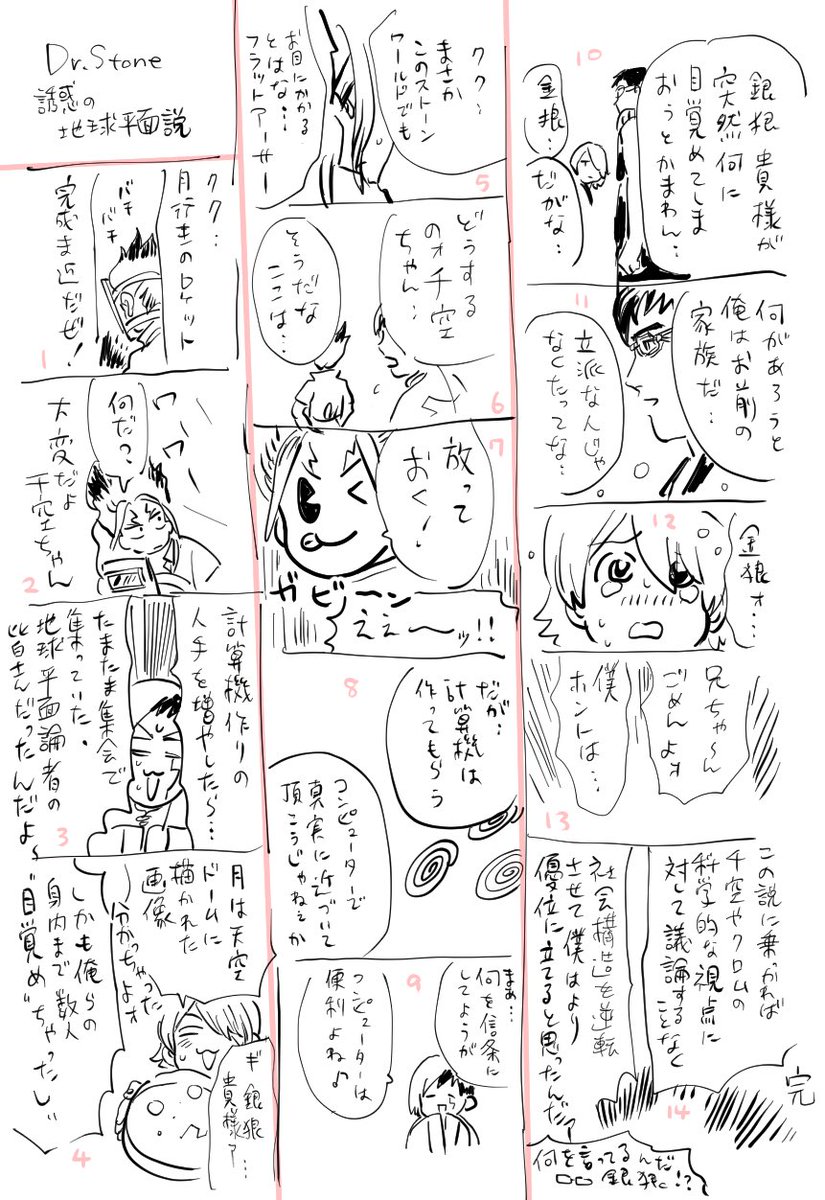 Dr.Stone
誘惑の
地球平面説
クク…
月行きのロケット
完成ま近だぜ！
バチ
バチ
1
ワー
ワー
何だ？
大変だよ
千空ちゃん
2
計算機作りの
人手を増やしたら…
たまたま集会で
集まっていた、
地球平面論者の
皆さんだったんだよ〜
3
月は天空
ドームに
描かれた
画像
わかっちゃった
よォ
しかも俺らの
身内まで数人
"目覚め"ちゃったし"
ギ 銀狼
貴様ァ…
4
クク…
まさか
このストーン
ワールドでも
お目にかかる
とはな…
フラットアーサー
5
どうする
のォ千空
ちゃん…
そうだな
ここは…
6
7
放って
おく！
ガビーン
ええ〜ッ!!
8
だが…
計算機は
作ってもらう
コンピューターで
真実に近づいて
頂こうじゃねぇか
9
まぁ…
何を信条に
してようが
コンピューターは
便利よね♪
10
銀狼 貴様が
突然何に
目覚めてしま
おうとかまわん…
金狼…
だがな…
11
何があろうと
俺はお前の
家族だ…
立派なんじゃ
なくたってな…
12
金狼ォ…
兄ちゃ〜ん
ごめんよォ
僕
ホントは…
13
この説に乗っかれば
千空やクロムの
科学的な視点に
対して議論する
ことなく
社会構造を逆転
させて僕はより
優位に立てると思ったんだァ
14
完
何を言ってるんだ
銀狼!?